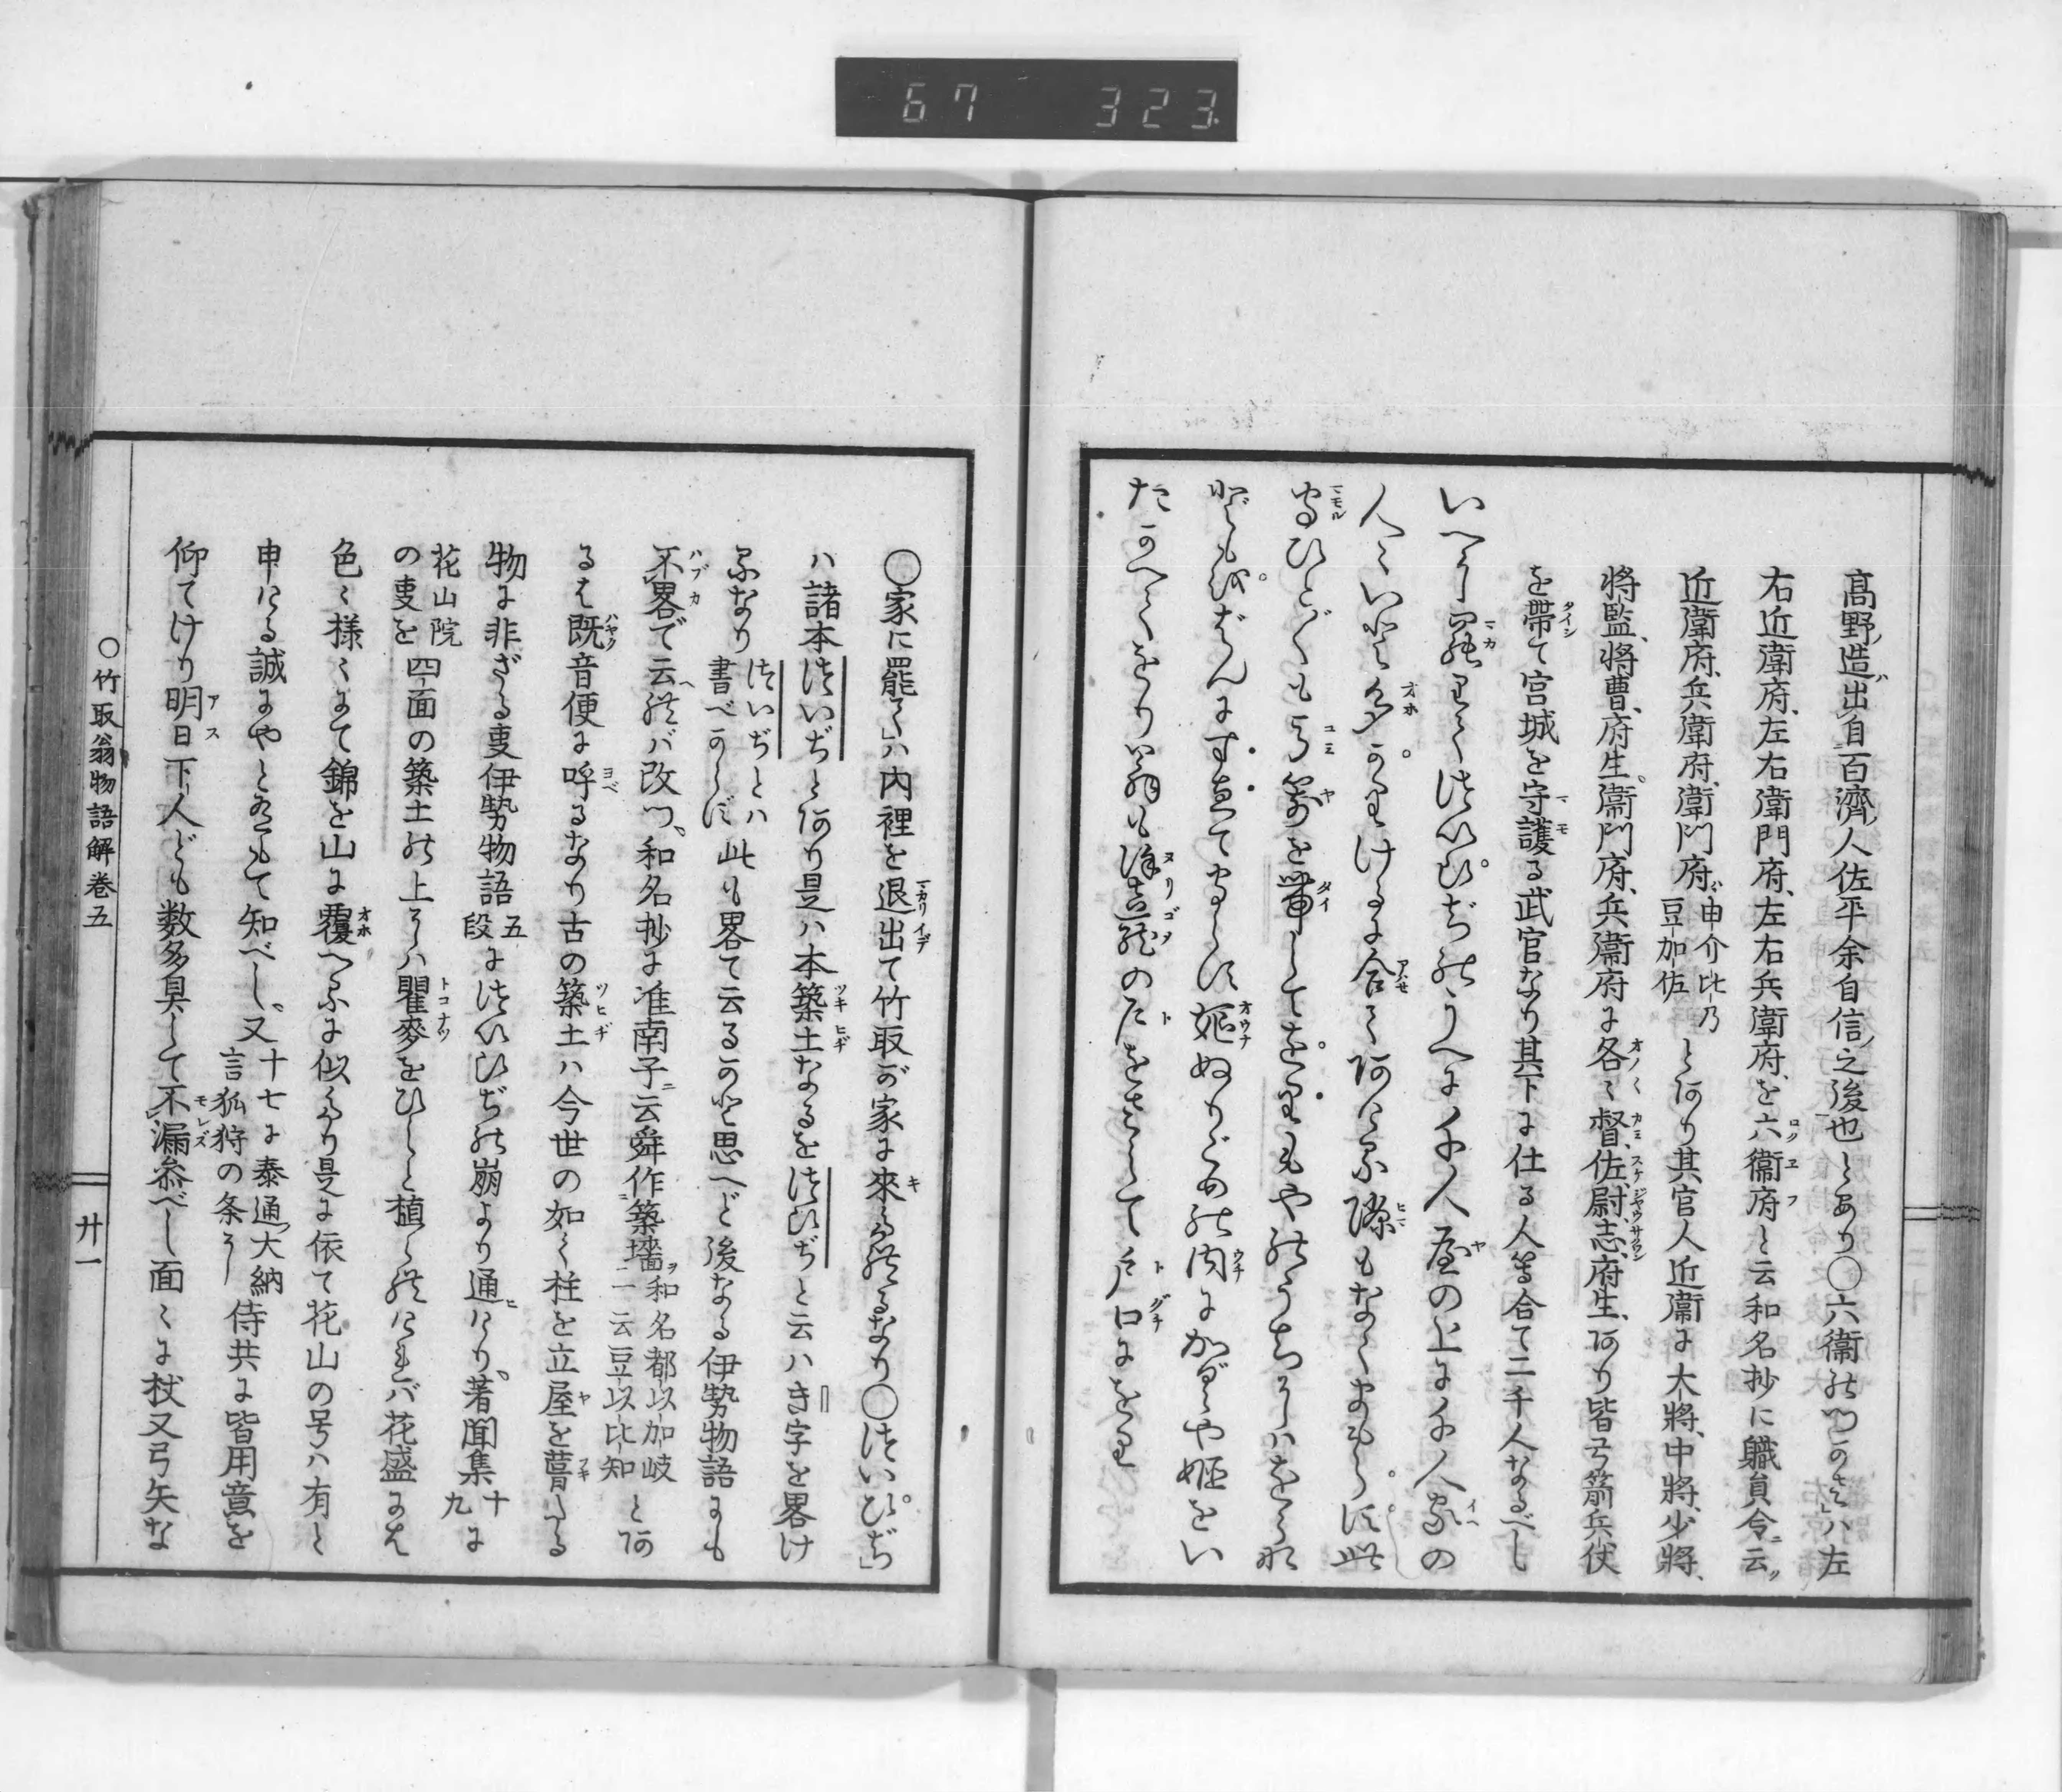 67 323
高野造出自百濟人佐平余自信之後也とあり〇六衞のつかさ」ハ左
右近衛府、左右衛門府、左右兵衛府、を六衞府と云和名抄に職員令云
近衛府、兵衛府、衛門府、由介比乃豆加佐とあり其官人近衛に大將、中將、少將、
將監、將曹、府生。衞門府、兵衞府に各〻督、佐、尉、志、府生、あり皆弓箭兵仗
を帶て宮城を守護る武官なり其下に仕る人等合て二千人なるべし
いへに罷りてついひぢのうへに千人屋の上に千人家の
人〻いと多かりけるに合てあける隙もなくまもらす此
守るひとびとも弓箭を帶してをりもや のうちにハをうな
どもをばんにすゑて守らす嫗ぬりごめの内にかぐや姫をい
だかへてをり翁も塗籠のとをさして戸口にをり
〇家に罷て」ハ内裡を退出て竹取が家に來たるなり〇ついひぢ」
ハ諸本ついぢとあり是ハ本築土なるをついひぢと云ハき字を畧け
るなりついぢとハ書べからず此も畧て云るかと思へど後なる伊勢物語にも
不畧で云れバ改つ、和名抄に准南子云舜作築墻和名都以加岐一云豆以比知とあ
るを既音便に呼るなり古の築土ハ今世の如く柱を立屋を葺たる
物に非ざる叓伊勢物語五段についひぢの崩より通けり。著聞集十九に
花山院の叓を四面の築土の上にハ瞿麥をひしと植られけれバ花盛には
色〻様〻にて錦を山に覆へるに似たり是に依て花山の号ハ有と
申ける誠にやと有もて知べし、又十七に泰通大納言狐狩の条に侍共に皆用意を
仰てけり明日下人ども数多具して不漏參べし面〻に杖又弓矢な
〇竹取翁物語解巻五
廿一